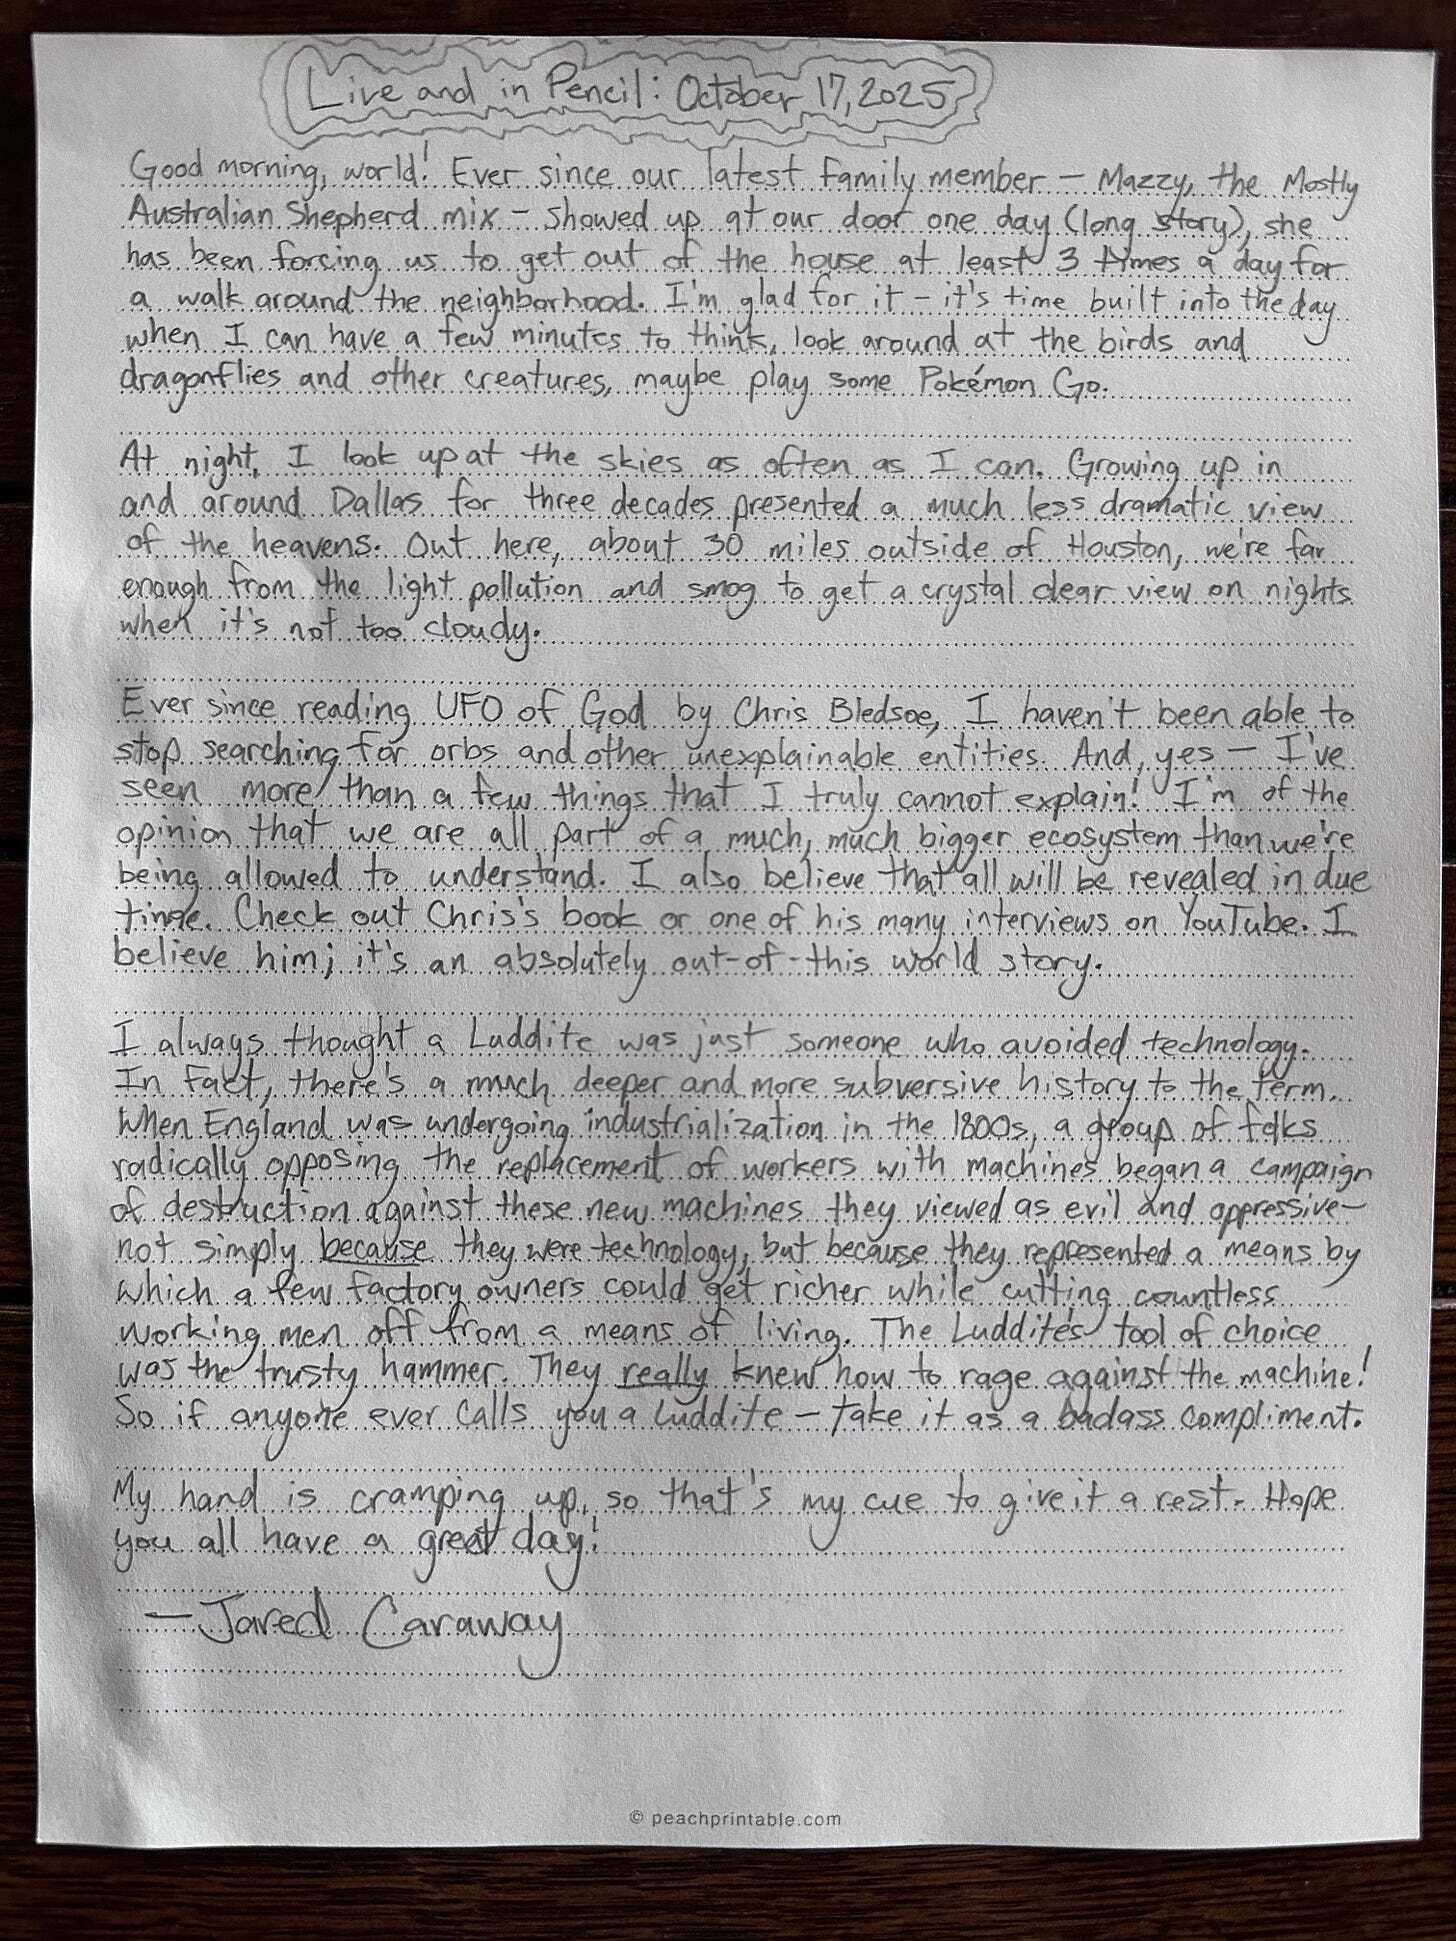 Live and in Pencil: October 17, 2025
Good morning, world! Ever since our latest family member – Mazzy, the Mostly
Australian Shepherd mix – showed up at our door one day (long story), she
has been forcing us to get out of the house at least 3 times a day for
a walk around the neighborhood. I'm glad for it – it's time built into the day
when I can have a few minutes to think, look around at the birds and
dragonflies and other creatures, maybe play some Pokémon Go.
At night, I look up at the skies as often as I can. Growing up in
and around Dallas for three decades presented a much less dramatic view
of the heavens. Out here, about 30 miles outside of Houston, we're far
enough from the light pollution and smog to get a crystal clear view on nights
when it's not too cloudy.
Ever since reading UFO of God by Chris Bledsoe, I haven't been able to
stop searching for orbs and other unexplainable entities. And, yes – I've
seen more than a few things that I truly cannot explain! I'm of the
opinion that we are all part of a much, much bigger ecosystem than we're
being allowed to understand. I also believe that all will be revealed in due
time. Check out Chris's book or one of his many interviews on YouTube. I
believe him; it's an absolutely out-of-this world story.
I always thought a Luddite was just someone who avoided technology.
In fact, there's a much deeper and more subversive history to the term.
When England was undergoing industrialization in the 1800s, a group of folks
radically opposing the replacement of workers with machines began a campaign
of destruction against these new machines they viewed as evil and oppressive–
not simply because they were technology, but because they represented a means by
which a few factory owners could get richer while cutting countless
working men off from a means of living. The Luddite's tool of choice
was the trusty hammer. They really knew how to rage against the machine!
So if anyone ever calls you a Luddite – take it as a badass compliment.
My hand is cramping up, so that's my cue to give it a rest. Hope
you all have a great day!
– Jared Caraway
© peachprintable.com